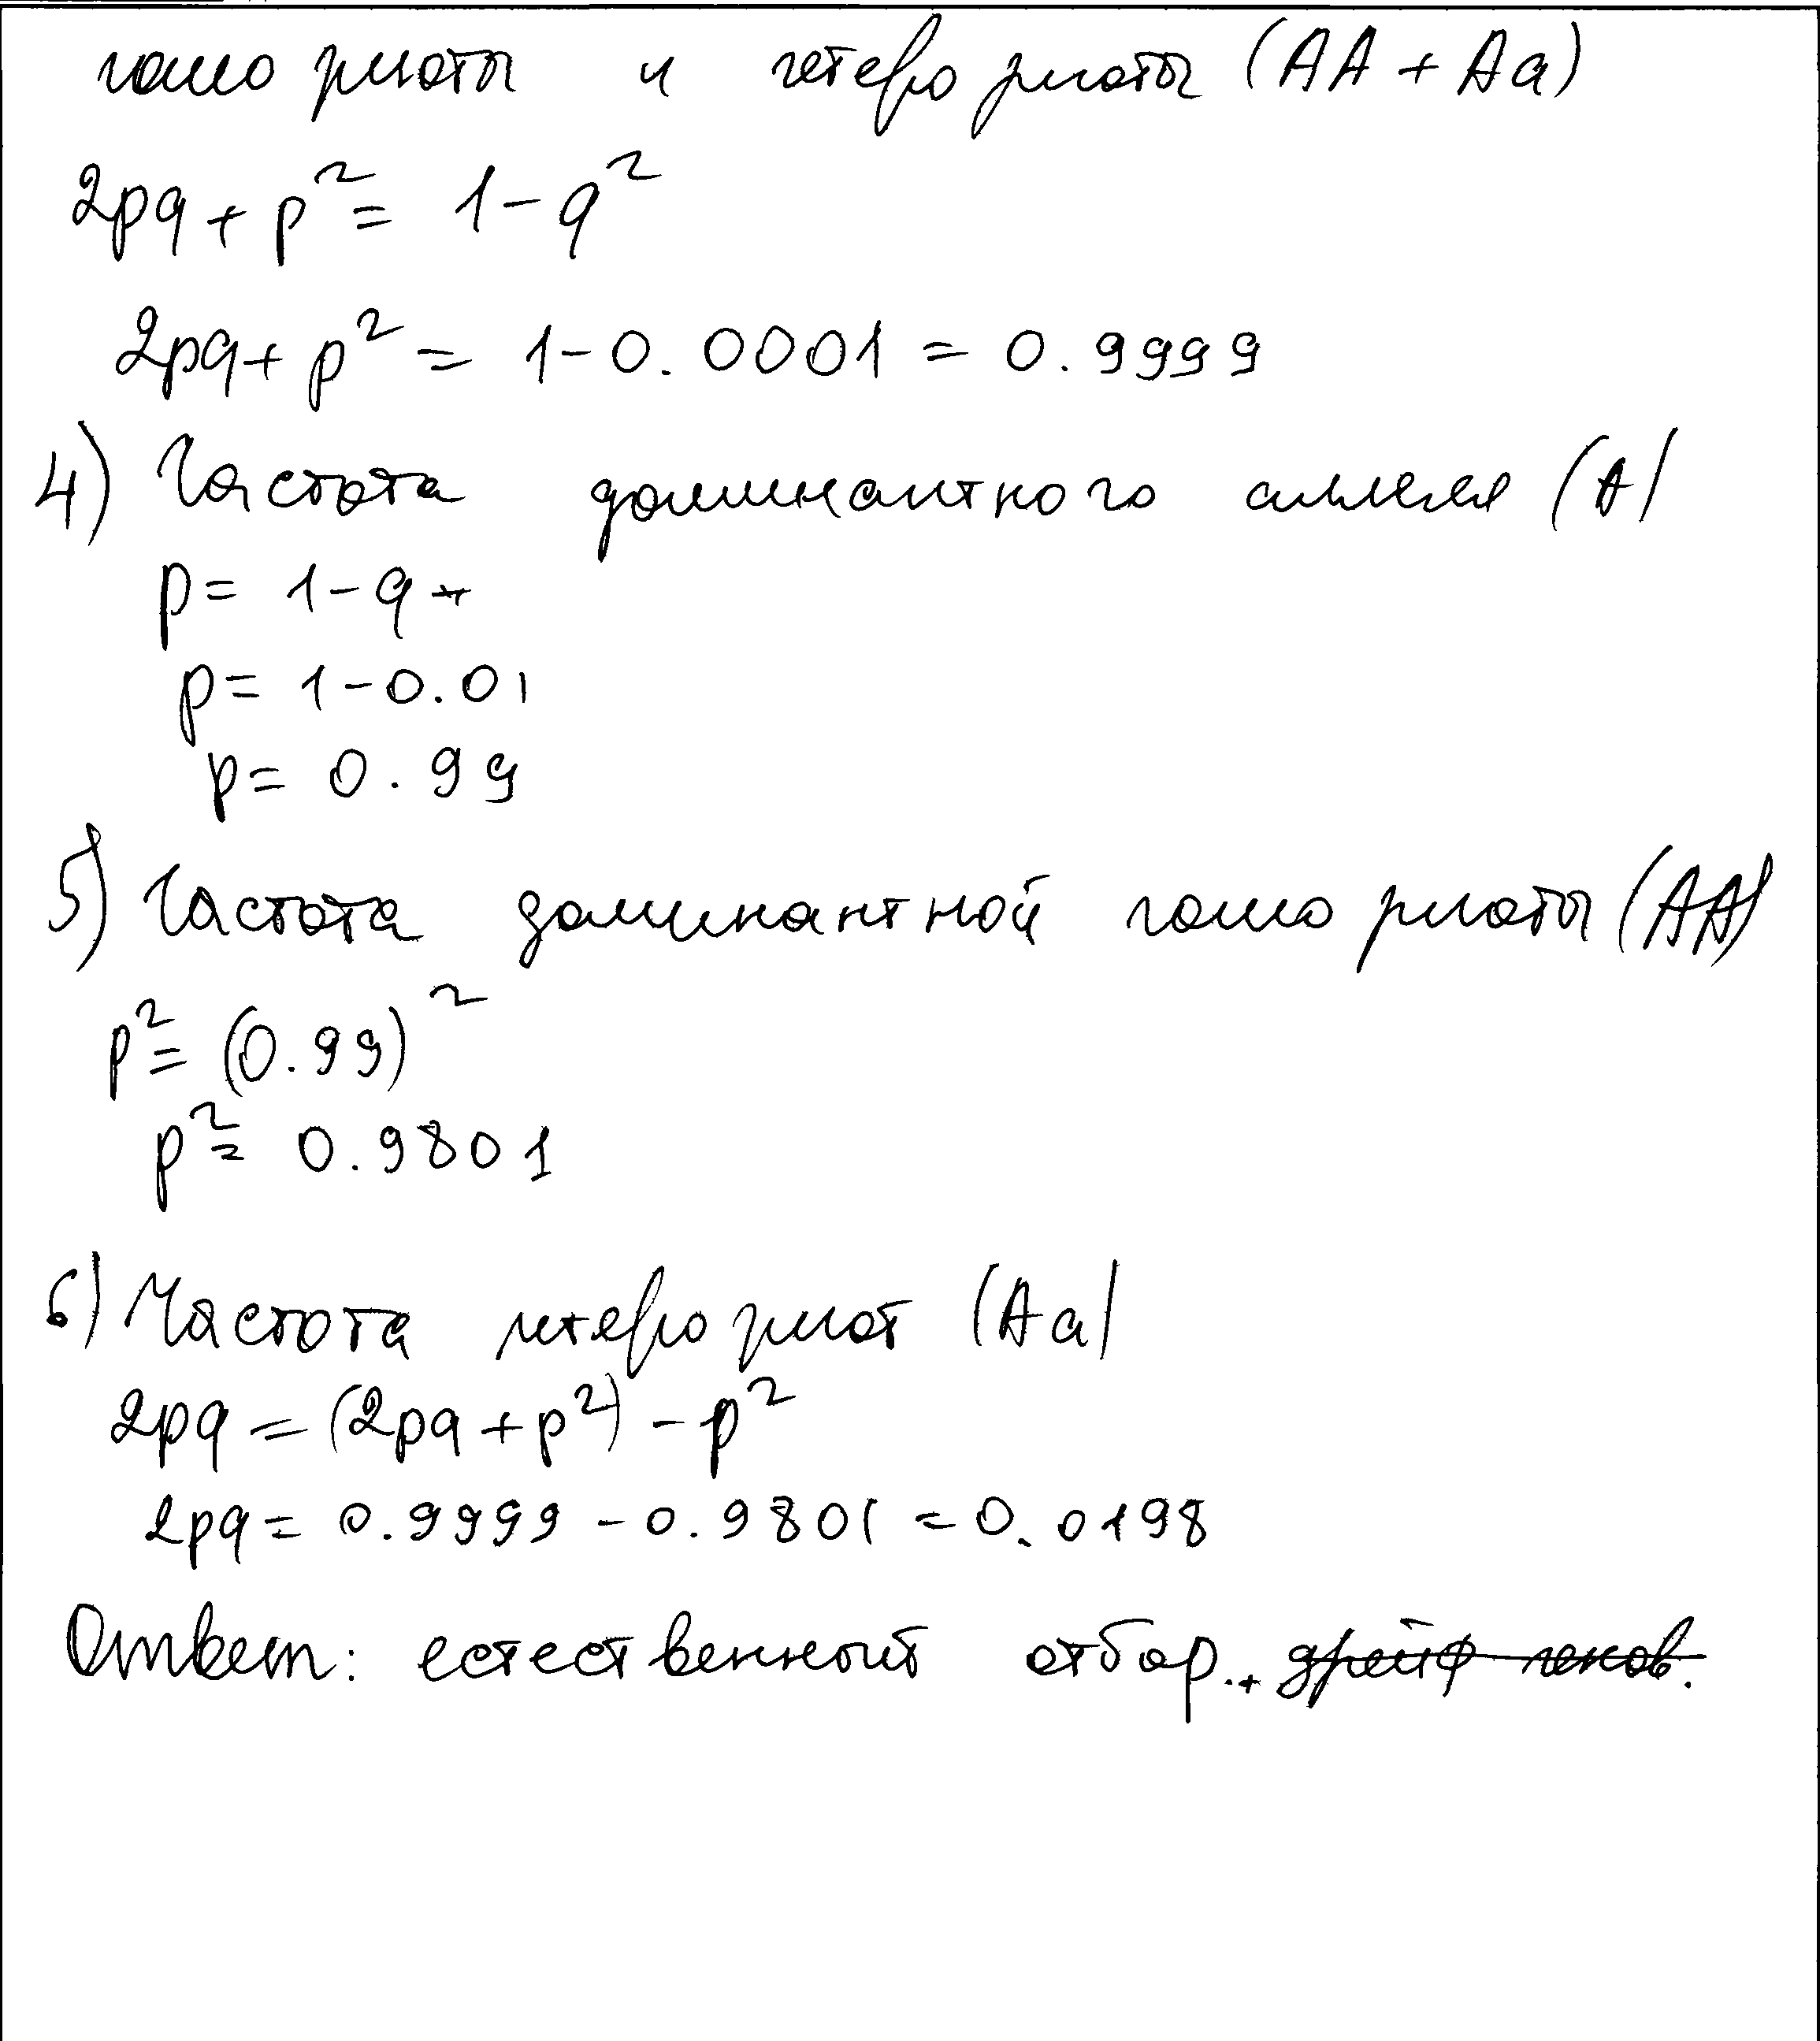 гомозиготы и гетерозиготы (AA + Aa)
2pq + p² = 1 - q²
2pq + p² = 1 - 0.0001 = 0.9999
4) Частота доминантного аллеля (A)
p = 1 - q
p = 1 - 0.01
p = 0.99
5) Частота доминантной гомозиготы (AA)
p² = (0.99)²
p² = 0.9801
6) Частота гетерозигот (Aa)
2pq = (2pq + p²) - p²
2pq = 0.9999 - 0.9801 = 0.0198
Ответ: естественный отбор. дрейф генов.